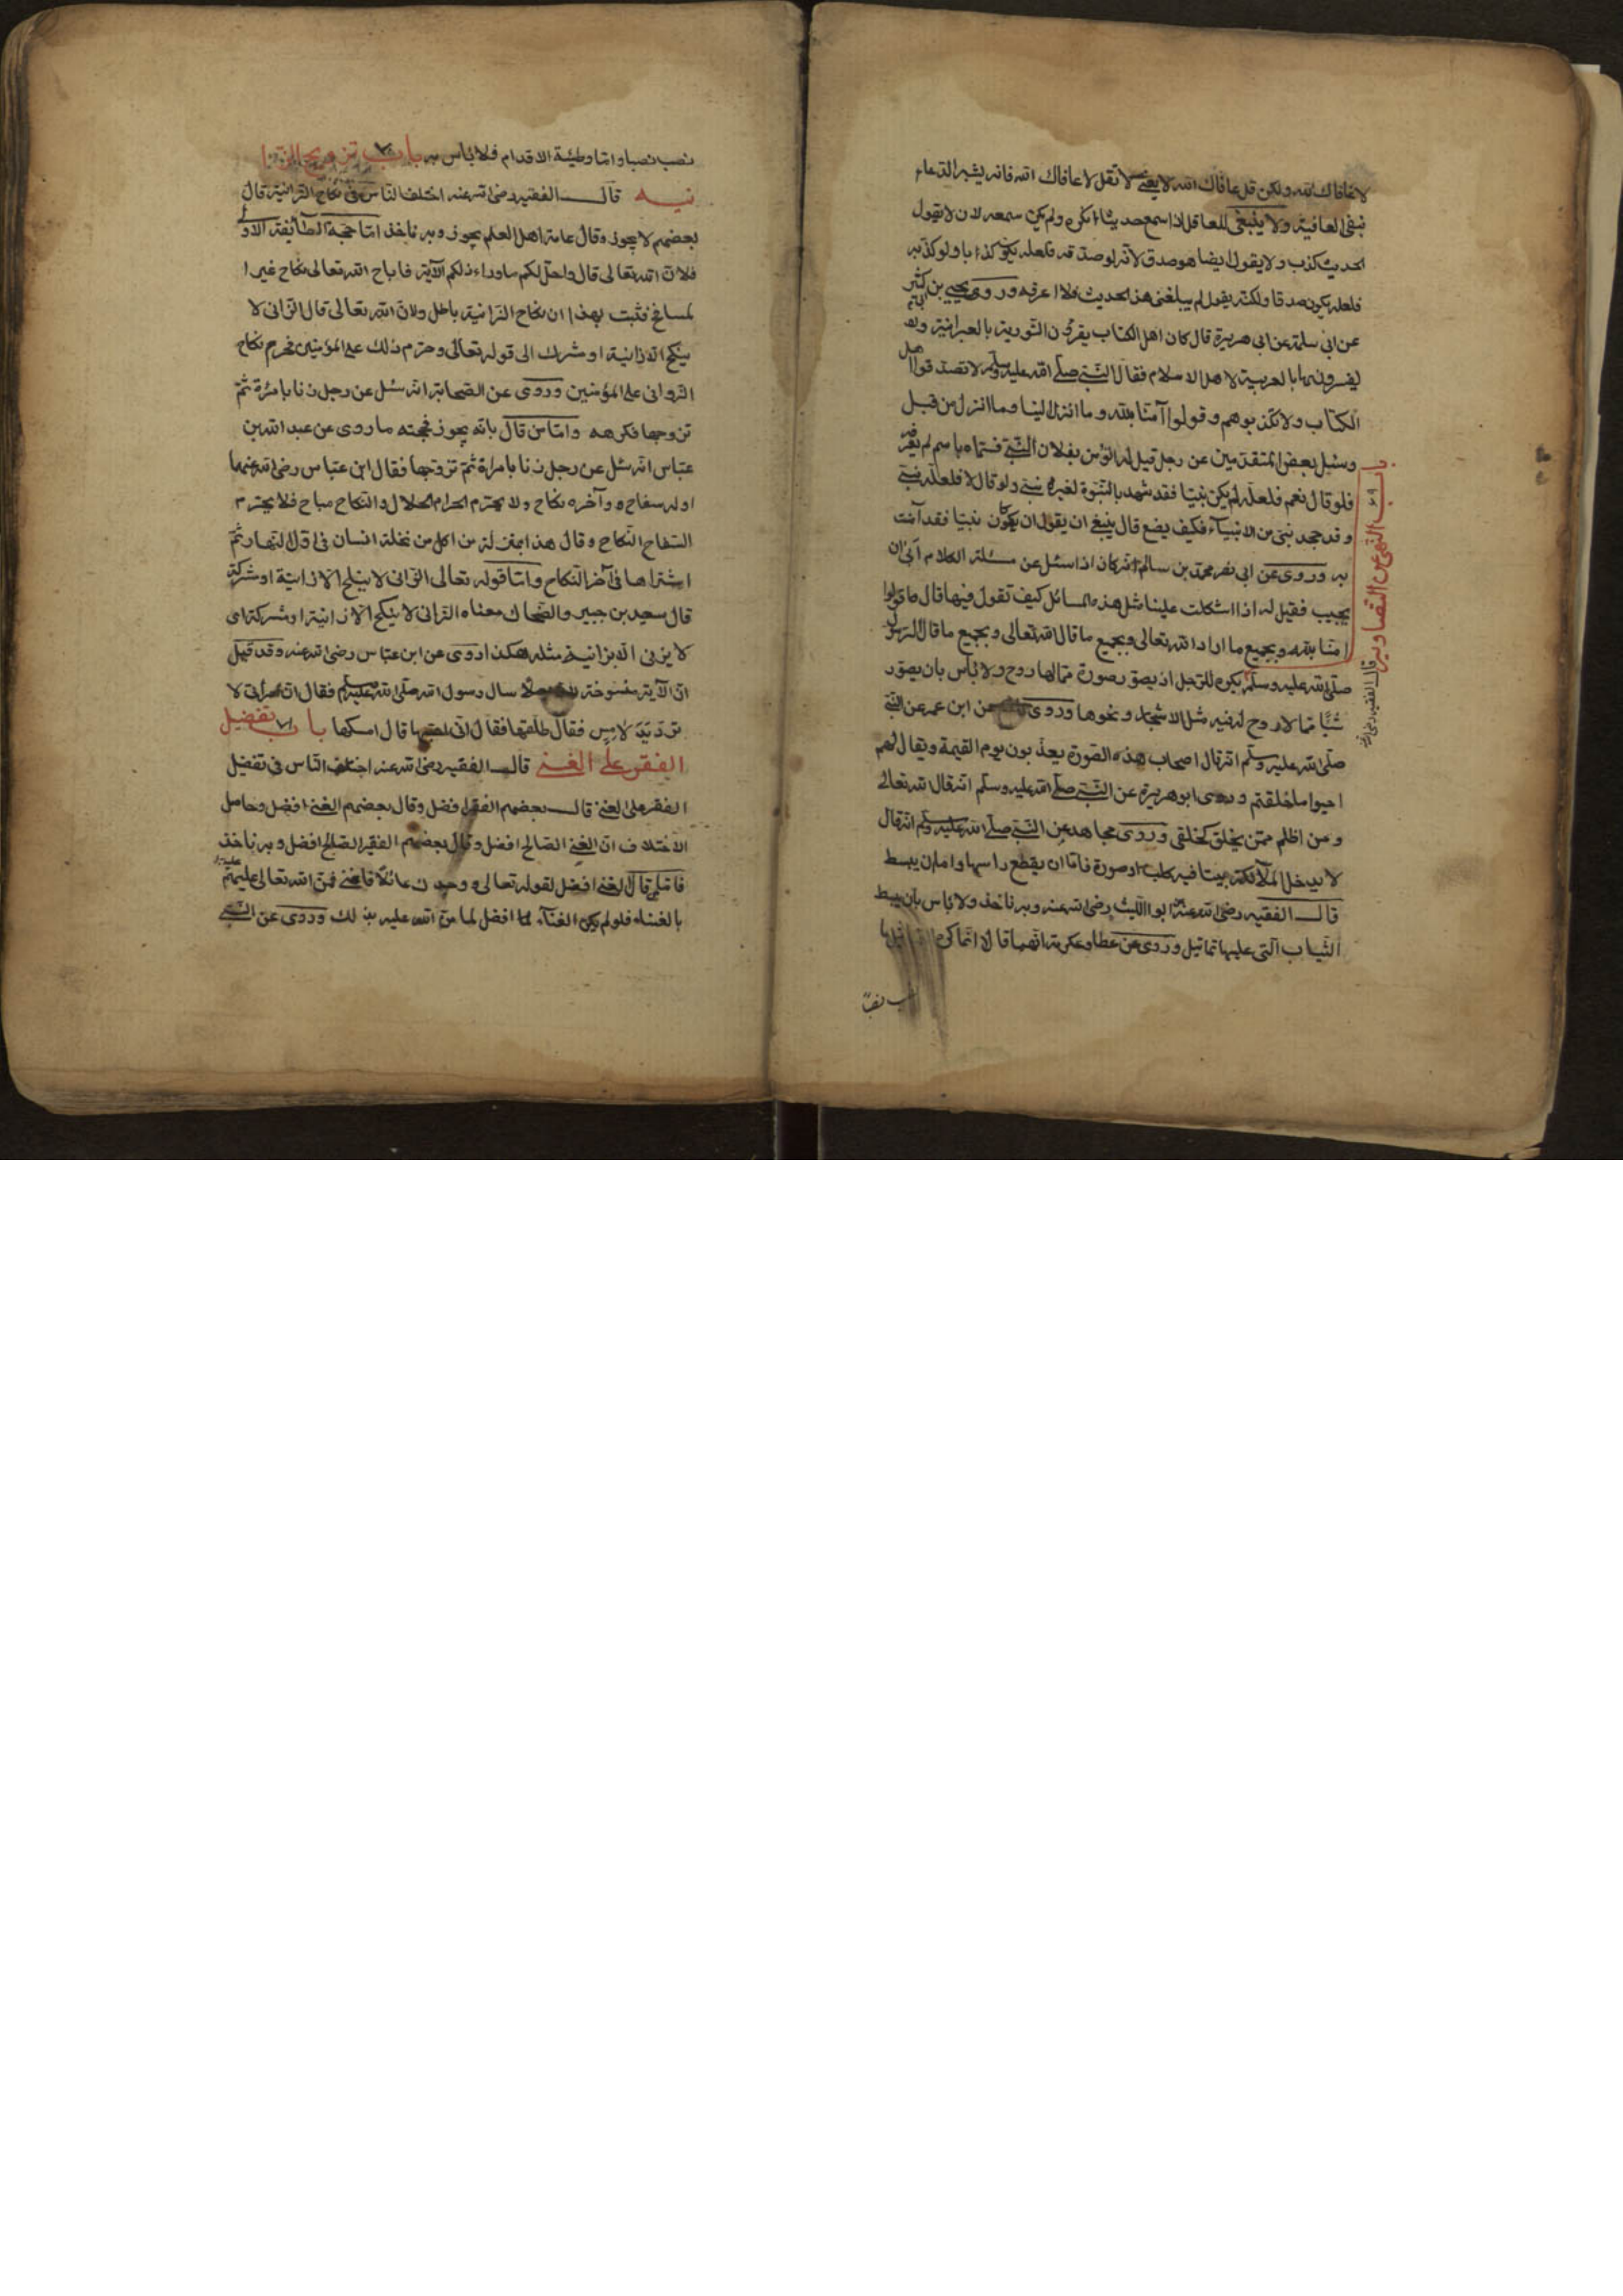 لا عافاك الله ولكن قل عافاك الله لا يعني لا تقل لا عافاك الله فانه يشبه الدعاء
بنفى العافية ولا ينبغى للعاقل اذا سمع حديثا نكره ولم يكن سمعه لان لا يقول
الحديث كذب ولا يقول ايضا هو صدق لانه لو صدقه فلعله يكون كذبا ولو كذبه
فلعله يكون صدقا ولكنه يقول لم يبلغنى هذا الحديث فلا اعرفه وروى يحيى بن كثير
عن ابى سلمة عن ابى هريرة قال كان اهل الكتاب يقرؤن التورية بالعبرانية
يفسرونها بالعربية لاهل الاسلام فقال النبى صلى الله عليه وسلم لا تصدقوا اهل
الكتاب ولا تكذبوهم وقولوا آمنا بالله وما انزل الينا وما انزل من قبل
وسئل بعض المتقدمين عن رجل قيل له اتؤمن بفلان النبى فسماه باسم لم يعرفه
فلو قال نعم فلعله لم يكن نبيا فقد شهد بالنبوة لغير نبى ولو قال لا فلعله نبى
وقد جحد نبى من الانبياء فكيف يضع قال ينبغى ان يقول ان يكون نبيا فقد آمنت
به وروى عن ابى نصر محمد بن سالم انه كان اذا سئل عن مسئلة الكلام ابى ان
يجيب فقيل له اذا اشكلت علينا مثل هذه المسائل كيف تقول فيها قال قولوا
امنا بالله وبجميع ما اراد الله تعالى وبجميع ما قال الله تعالى وبجميع ما قال الرسول
باب النهى عن التصاوير
قال الفقيه رضى الله عنه
صلى الله عليه وسلم يكره للرجل ان يصور صورة مما لها روح ولا باس بان يصور
شيأ مما لا روح له فيه مثل الاشجار ونحوها وروى عن ابن عمر عن النبى
صلى الله عليه وسلم انه قال اصحاب هذه الصورة يعذبون يوم القيمة ويقال لهم
احيوا ما خلقتم وروى ابو هريرة عن النبى صلى الله عليه وسلم انه قال الله تعالى
ومن اظلم ممن يخلق كخلقى وروى مجاهد عن النبى صلى الله عليه وسلم انه قال
لا يدخل الملآئكة بيتا فيه كلب او صورة فاما ان يقطع راسها واما ان يبسط
قال الفقيه رضى الله عنه ابو الليث رضى الله عنه وبه ناخذ ولا باس بان يبسط
الثياب التى عليها تماثيل وروى عن عطا وعكرمة انهما قالا انما كره
نصب نصبا واما وطيئة الاقدام فلا باس به باب تزويج الزا
نيه قال الفقيه رضى الله عنه اختلف الناس فى نكاح الزانية قال
بعضهم لا يجوز وقال عامة اهل العلم يجوز وبه ناخذ اما حجة الطآئفة الاولى
فلان الله تعالى قال واحل لكم ما وراء ذلكم الآية فاباح الله تعالى نكاح غير ا
لمسافح فثبت بهذا ان نكاح الزانية باطل ولان الله تعالى قال الزانى لا
ينكح الا زانية او مشرك الى قوله تعالى وحرم ذلك على المؤمنين فحرم نكاح
الزوانى على المؤمنين وروى عن الصحابة انه سئل عن رجل زنا بامرئة ثم
تزوجها فكرهه واما من قال بانه يجوز فحجته ما روى عن عبد الله بن
عباس انه سئل عن رجل زنا بامراة ثم تزوجها فقال ابن عباس رضى الله عنهما
اوله سفاح وآخره نكاح ولا يحرم الحرام الحلال والنكاح مباح فلا يحرم
السفاح النكاح وقال هذا بمنزلة من اكل من نخلة انسان فى اول النهار ثم
اشتراها فى آخر النكاح واما قوله تعالى الزانى لا ينكح الا زانية او مشركة
قال سعيد بن جبير والضحاك معناه الزانى لا ينكح الا زانية او مشركة اى
لا يزنى الا بزانية مثله هكذا روى عن ابن عباس رضى الله عنه وقد قيل
ان الآية منسوخة سال رسول الله صلى الله عليه وسلم فقال ان امرأتى لا
تردّ يَدَ لامِسٍ فقال طلقها فقال انى احبها قال امسكها باب تفضيل
الفقر على الغنى قال الفقيه رضى الله عنه اختلف الناس فى تفضيل
الفقر على الغنى قال بعضهم الفقر افضل وقال بعضهم الغنى افضل وحاصل
الاختلاف ان الغنى الصالح افضل وقال بعضهم الفقير الصالح افضل وبه ناخذ
قال الغنى افضل لقوله تعالى ووجدك عائلا فاغنى فمن الله تعالى عليه
بالغناء فلو لم يكن الغناء افضل لما من الله عليه بذلك وروى عن النبى